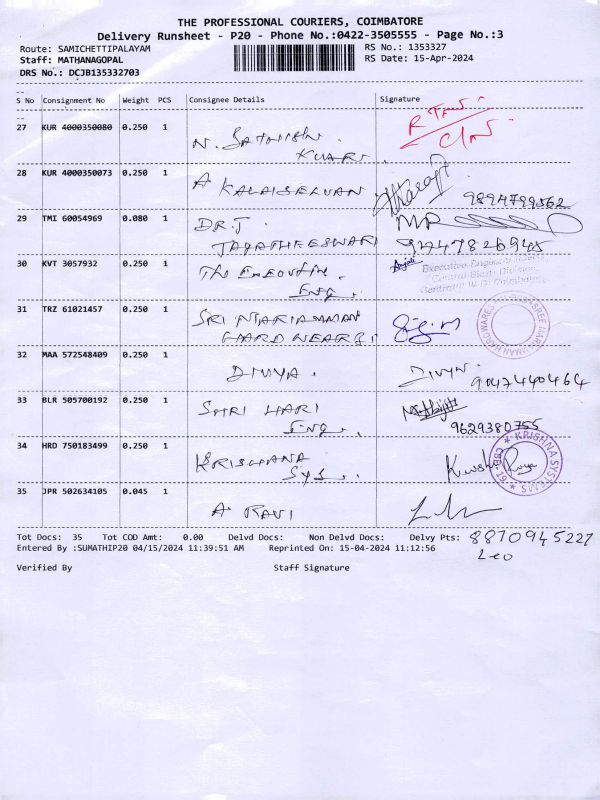 THE PROFESSIONAL COURIERS, COIMBATORE
Delivery Runsheet - P20 - Phone No.:0422-3505555 - Page No.:3
Route: SAMICHETTIPALAYAM
Staff: MATHANAGOPAL
DRS No.: DCJB135332703
RS No.: 1353327
RS Date: 15-Apr-2024
S No Consignment No Weight PCS Consignee Details Signature
27 KUR 4000350080 0.250 1 N. Sathish Kumar.
28 KUR 4000350073 0.250 1 A KALAISELVAN 9894799562
29 TMI 60054969 0.080 1 DR. J. JAYATHEESWARI
30 KVT 3057932 0.250 1 The Executive. Eng. Anjali
Executive Engineer
31 TRZ 61021457 0.250 1 SRI MARIAMMAN HARDWEAR
32 MAA 572548409 0.250 1 DIVYA. Divya. 9047440464
33 BLR 505700192 0.250 1 SHRI HARI Eng. 9629380755
34 HRD 750183499 0.250 1 KRISHANA Sys.
KRISHNA SYSTEMS ★ CBE-16 ★
35 JPR 502634105 0.045 1 A RAVI
Tot Docs: 35 Tot COD Amt: 0.00 Delvd Docs: Non Delvd Docs: Delvy Pts: 8870945227
Leo
Entered By :SUMATHIP20 04/15/2024 11:39:51 AM Reprinted On: 15-04-2024 11:12:56
Verified By Staff Signature